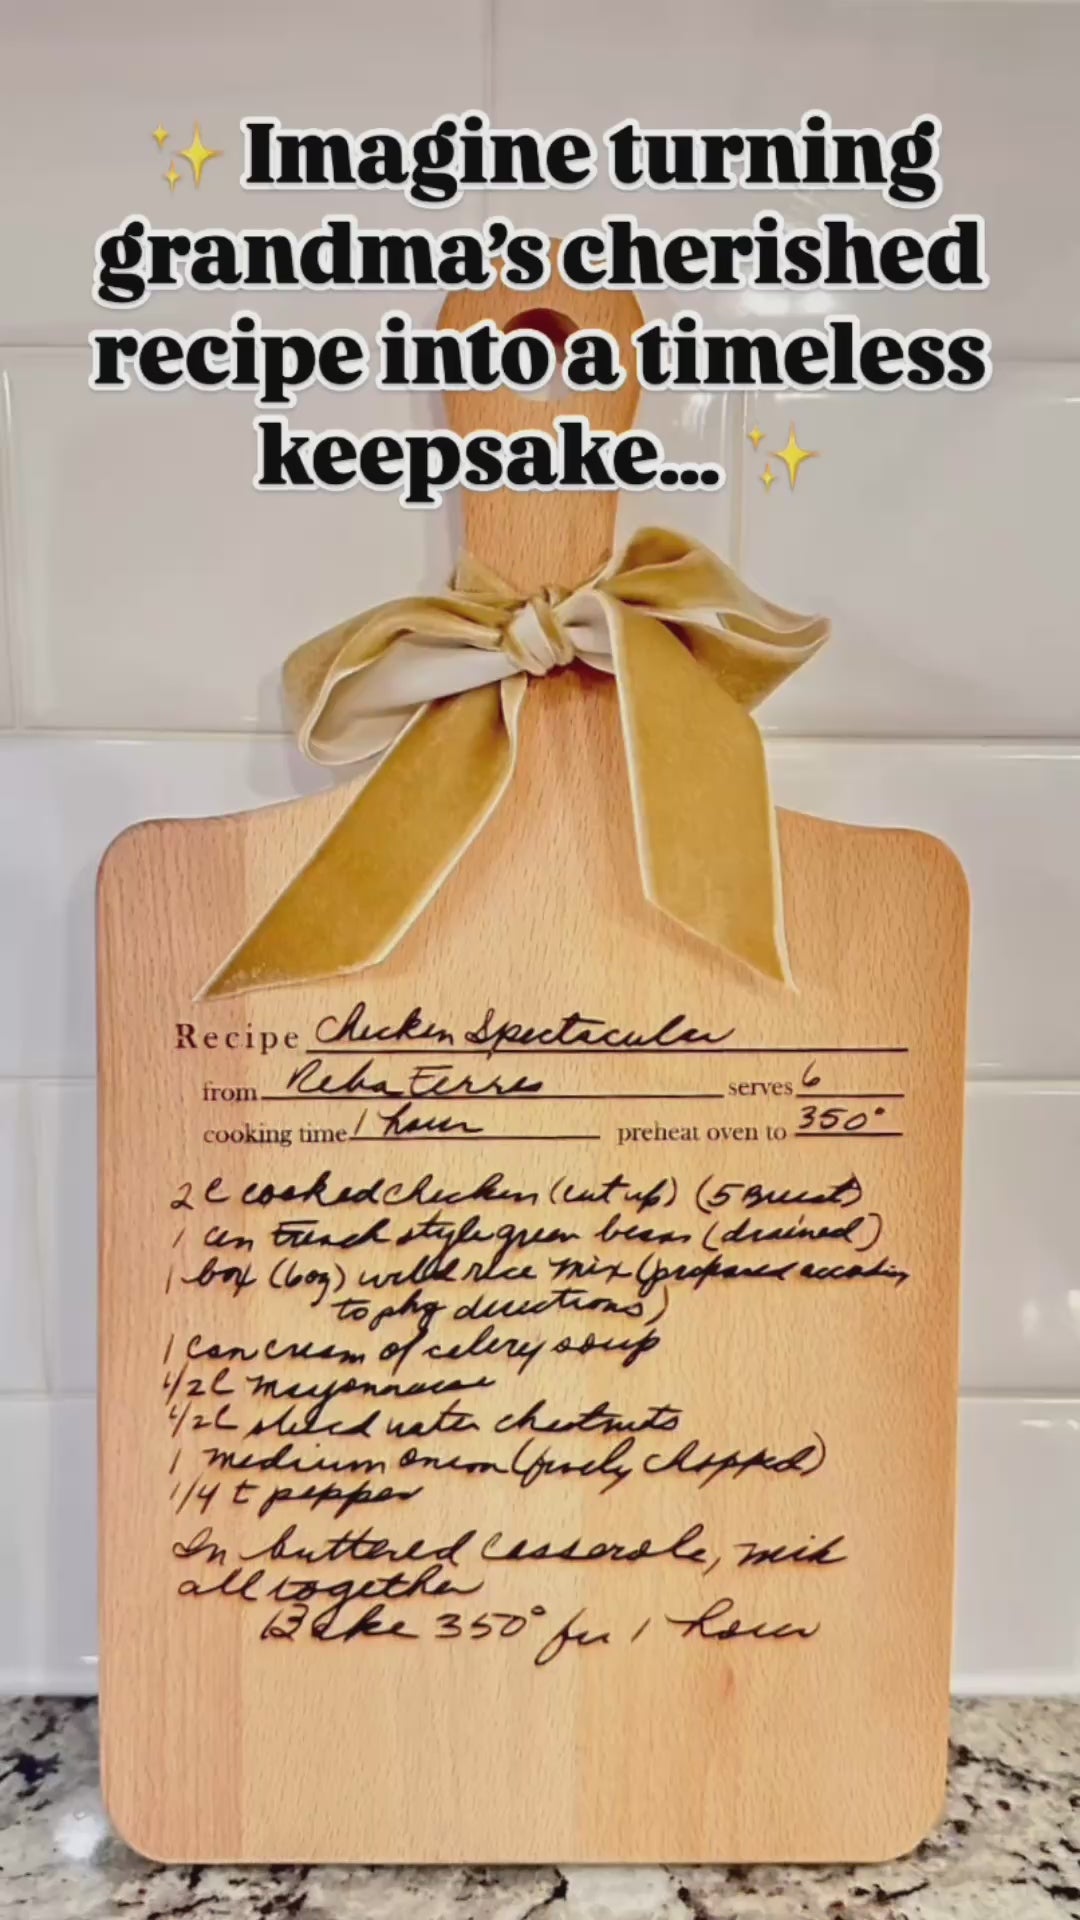 ✨ Imagine turning
grandma's cherished
recipe into a timeless
keepsake... ✨
Recipe Chicken Spectacular
from Reba Ferres serves 6
cooking time 1 hour preheat oven to 350°
2 C cooked chicken (cut up) (5 Breast)
1 can French style green beans (drained)
1 box (6oz) wild rice mix (prepared according
to pkg directions)
1 can cream of celery soup
1/2 C mayonnaise
1/2 C sliced water chestnuts
1 medium onion (finely chopped)
1/4 t pepper
In buttered casserole, mix
all together
Bake 350° for 1 hour